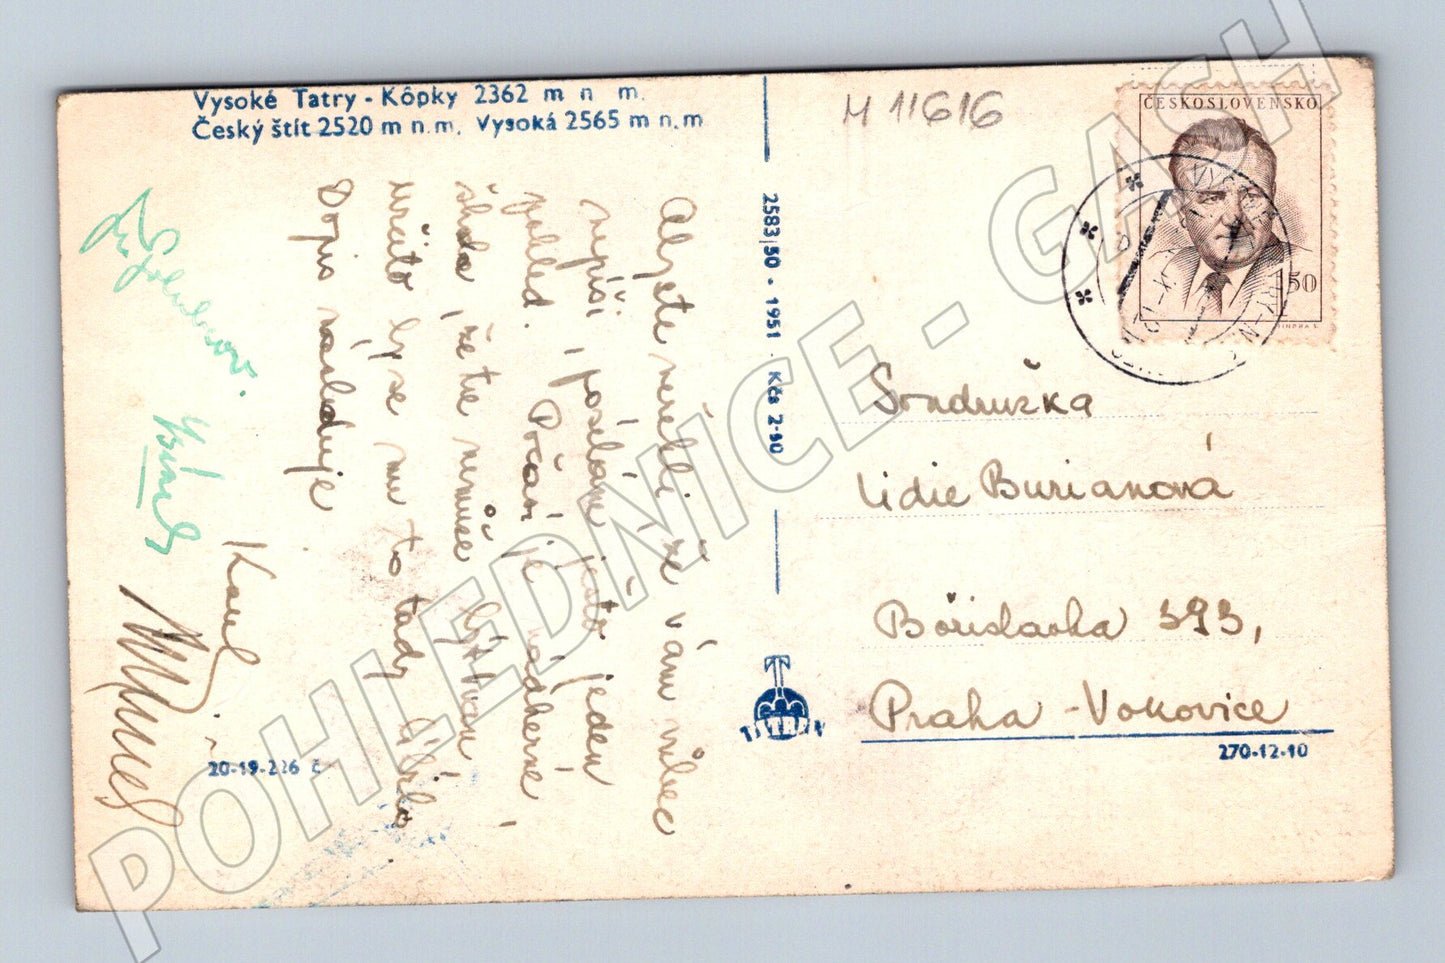 Vysoké Tatry - Kôpky 2362 m n m.
Český štít 2520 m n.m. Vysoká 2565 m n.m
M 11616
ČESKOSLOVENSKO
1.50
Abyste neřekli, že vám vůbec
nepíši, posílám jeden
pohled. Počasí je nádherné
škoda, že tu nemůže
určitě by se mu to tady líbilo
Dopis následuje
Karel
2583/50 - 1951 - Kčs 2-90
Soudružka
Lidie Burianová
Bořislavka 393,
Praha - Vokovice
TATRAN
270-12-10
20-19-226 č
POHLEDNICE - GASH